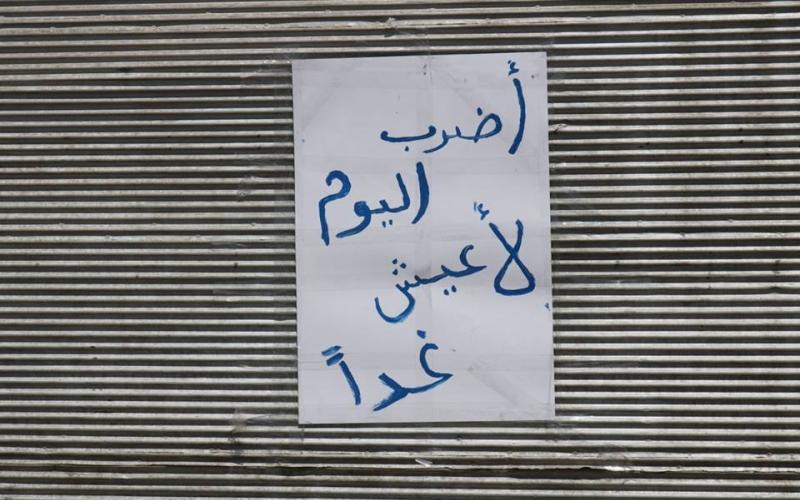 أضرب
اليوم
لأعيش
غداً